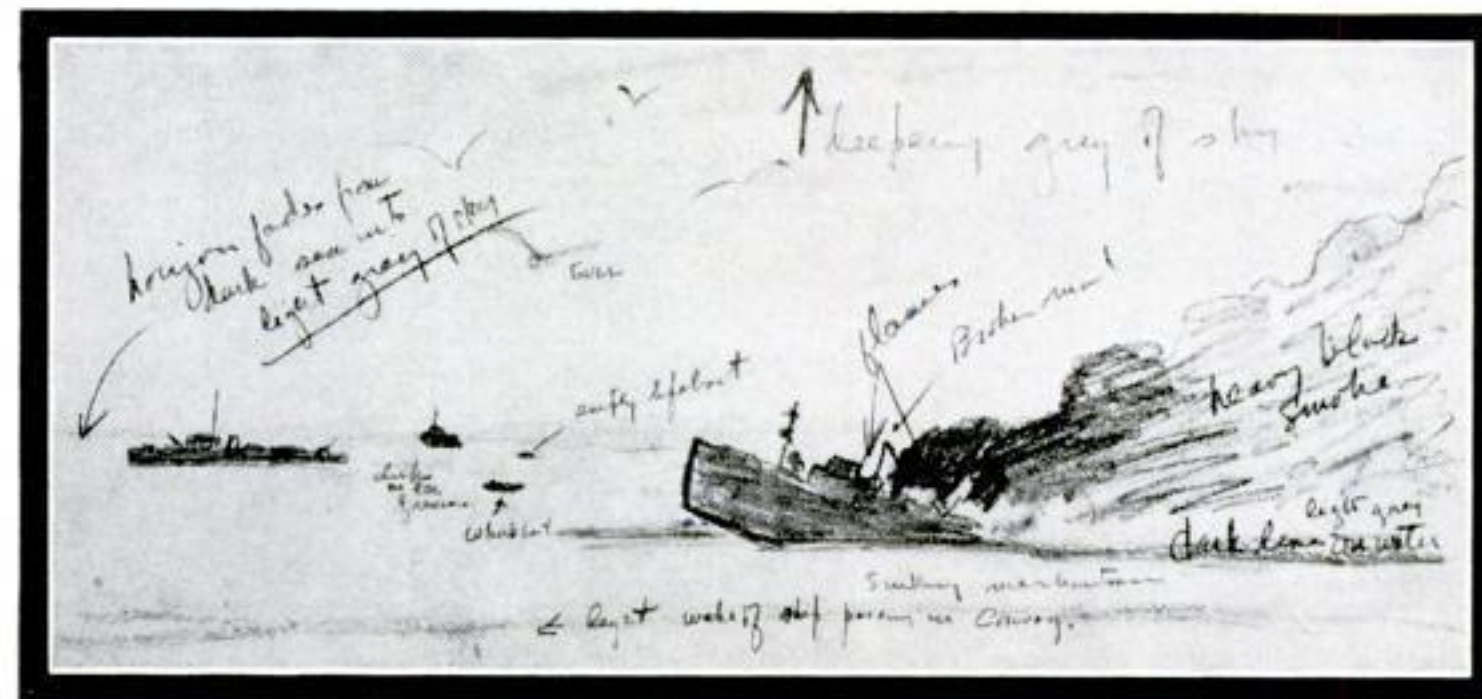 deepening grey of sky
horizon fades from
dark sea into
light gray of sky
flames
Broken mast
empty lifeboat
heavy black
smoke
whaleboat
light gray
dark line on water
Sinking merchantman
light wake of ship passing in Convoy.